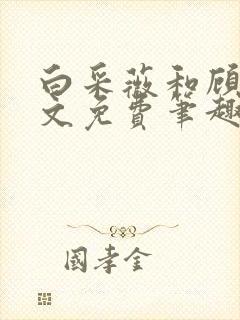 白采薇和顾
文免费笔趣
國孝金